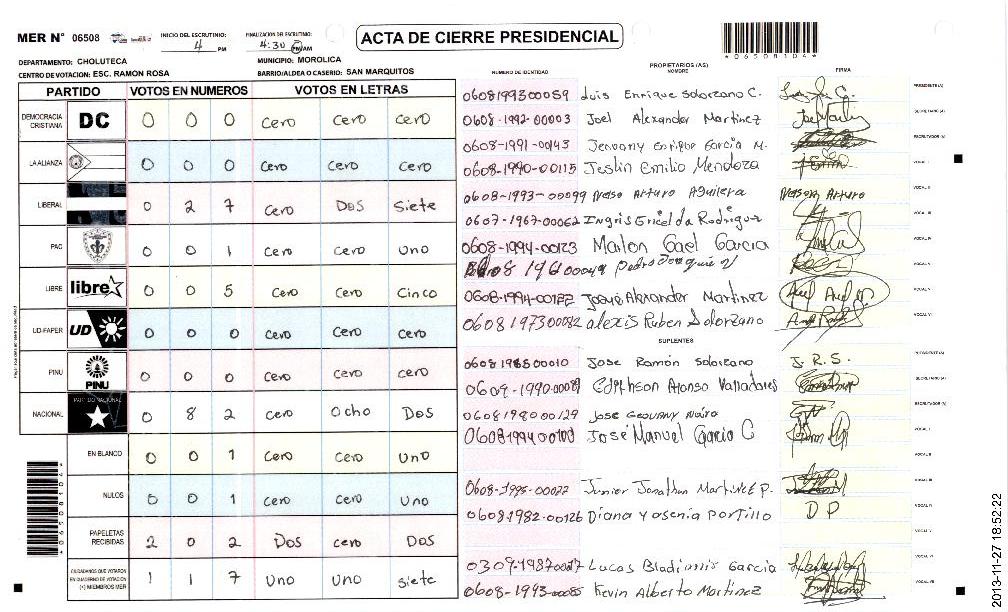 MER N° 06508
INICIO DEL ESCRUTINIO: 4 PM
FINALIZACION DEL ESCRUTINIO: 4:30 PM/AM
ACTA DE CIERRE PRESIDENCIAL
*06508104*
DEPARTAMENTO: CHOLUTECA
MUNICIPIO: MOROLICA
CENTRO DE VOTACION: ESC. RAMÓN ROSA
BARRIO/ALDEA O CASERIO: SAN MARQUITOS
PARTIDO VOTOS EN NUMEROS VOTOS EN LETRAS
DEMOCRACIA CRISTIANA DC 0 0 0 Cero Cero Cero
LA ALIANZA 0 0 0 Cero Cero Cero
LIBERAL 0 2 7 Cero Dos Siete
PAC 0 0 1 Cero Cero Uno
LIBRE libre 0 0 5 Cero Cero Cinco
UD-FAPER UD 0 0 0 Cero Cero Cero
PINU PINU 0 0 0 Cero Cero Cero
NACIONAL PARTIDO NACIONAL 0 8 2 Cero Ocho Dos
EN BLANCO 0 0 1 Cero Cero Uno
NULOS 0 0 1 Cero Cero Uno
PAPELETAS RECIBIDAS 2 0 2 Dos Cero Dos
CIUDADANOS QUE VOTARON EN CUADERNO DE VOTACION (+) MIEMBROS MER 1 1 7 Uno Uno Siete
*06508104*
NUMERO DE IDENTIDAD PROPIETARIOS (AS) NOMBRE FIRMA
0608199300059 Luis Enrique Solorzano C. PRESIDENTE(A)
0608-1992-00003 Joel Alexander Martinez SECRETARIO (A)
0608-1991-00143 Enrique Garcia M. ESCRUTADOR (A)
0608-1990-00115 Jeslin Emilio Mendoza VOCAL I
0608-1993-00099 Arturo Aguilera Nelson Arturo VOCAL II
0607-1967-00062 Ingris Ericelda Rodriguez VOCAL III
0608-1994-00123 Marlon Gael Garcia VOCAL IV
Pedro Joaquin VOCAL V
0608-1994-00122 Josué Alexander Martinez VOCAL V
0608197300082 alexis Ruben Solorzano VOCAL VI
SUPLENTES
0608198500010 Jose Ramón Solorzano J. R. S. PRESIDENTE(A)
Alonso Valladares SECRETARIO (A)
0608198000129 Jose Geovany ESCRUTADOR (A)
0608199400100 José Manuel Garcia C VOCAL I
VOCAL II
0608-1995-00022 Junior Jonathan Martinez P. VOCAL III
06081982-00126 Diana Yosenia Portillo D P VOCAL IV
VOCAL V
Lucas Bladimir Garcia VOCAL VI
0608-1993-00085 Kevin Alberto Martinez VOCAL VII
2013-11-27 18:52:22